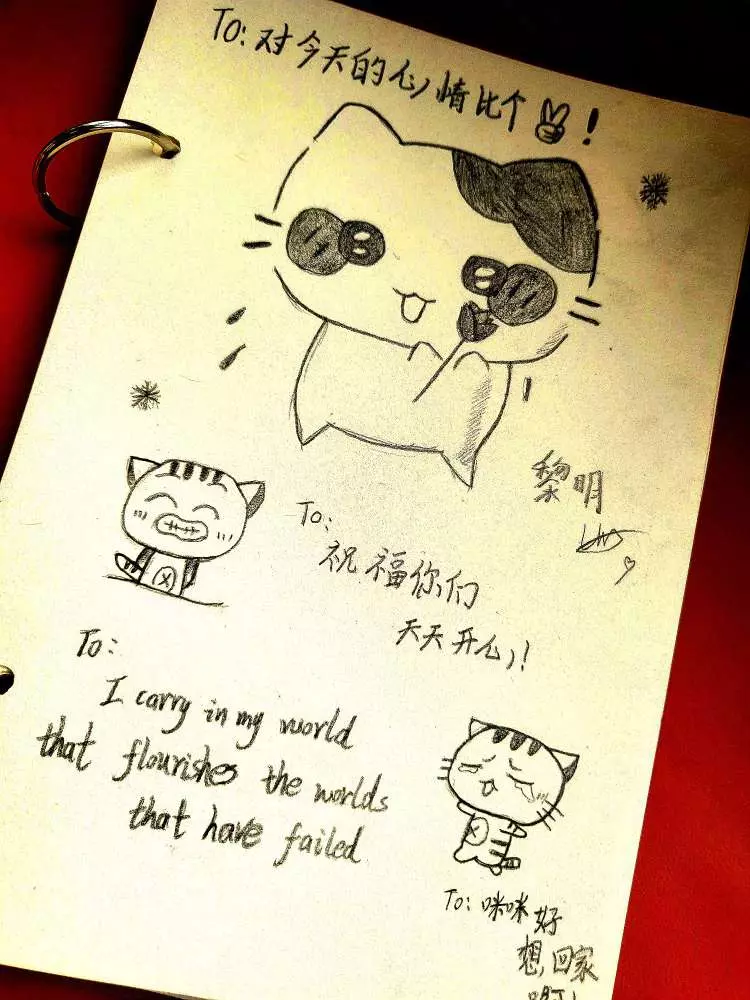 To: 对今天的心情比个✌!
黎明
To:
祝福你们
天天开心!
To:
I carry in my world
that flourishes the worlds
that have failed
To: 咪咪好
想回家